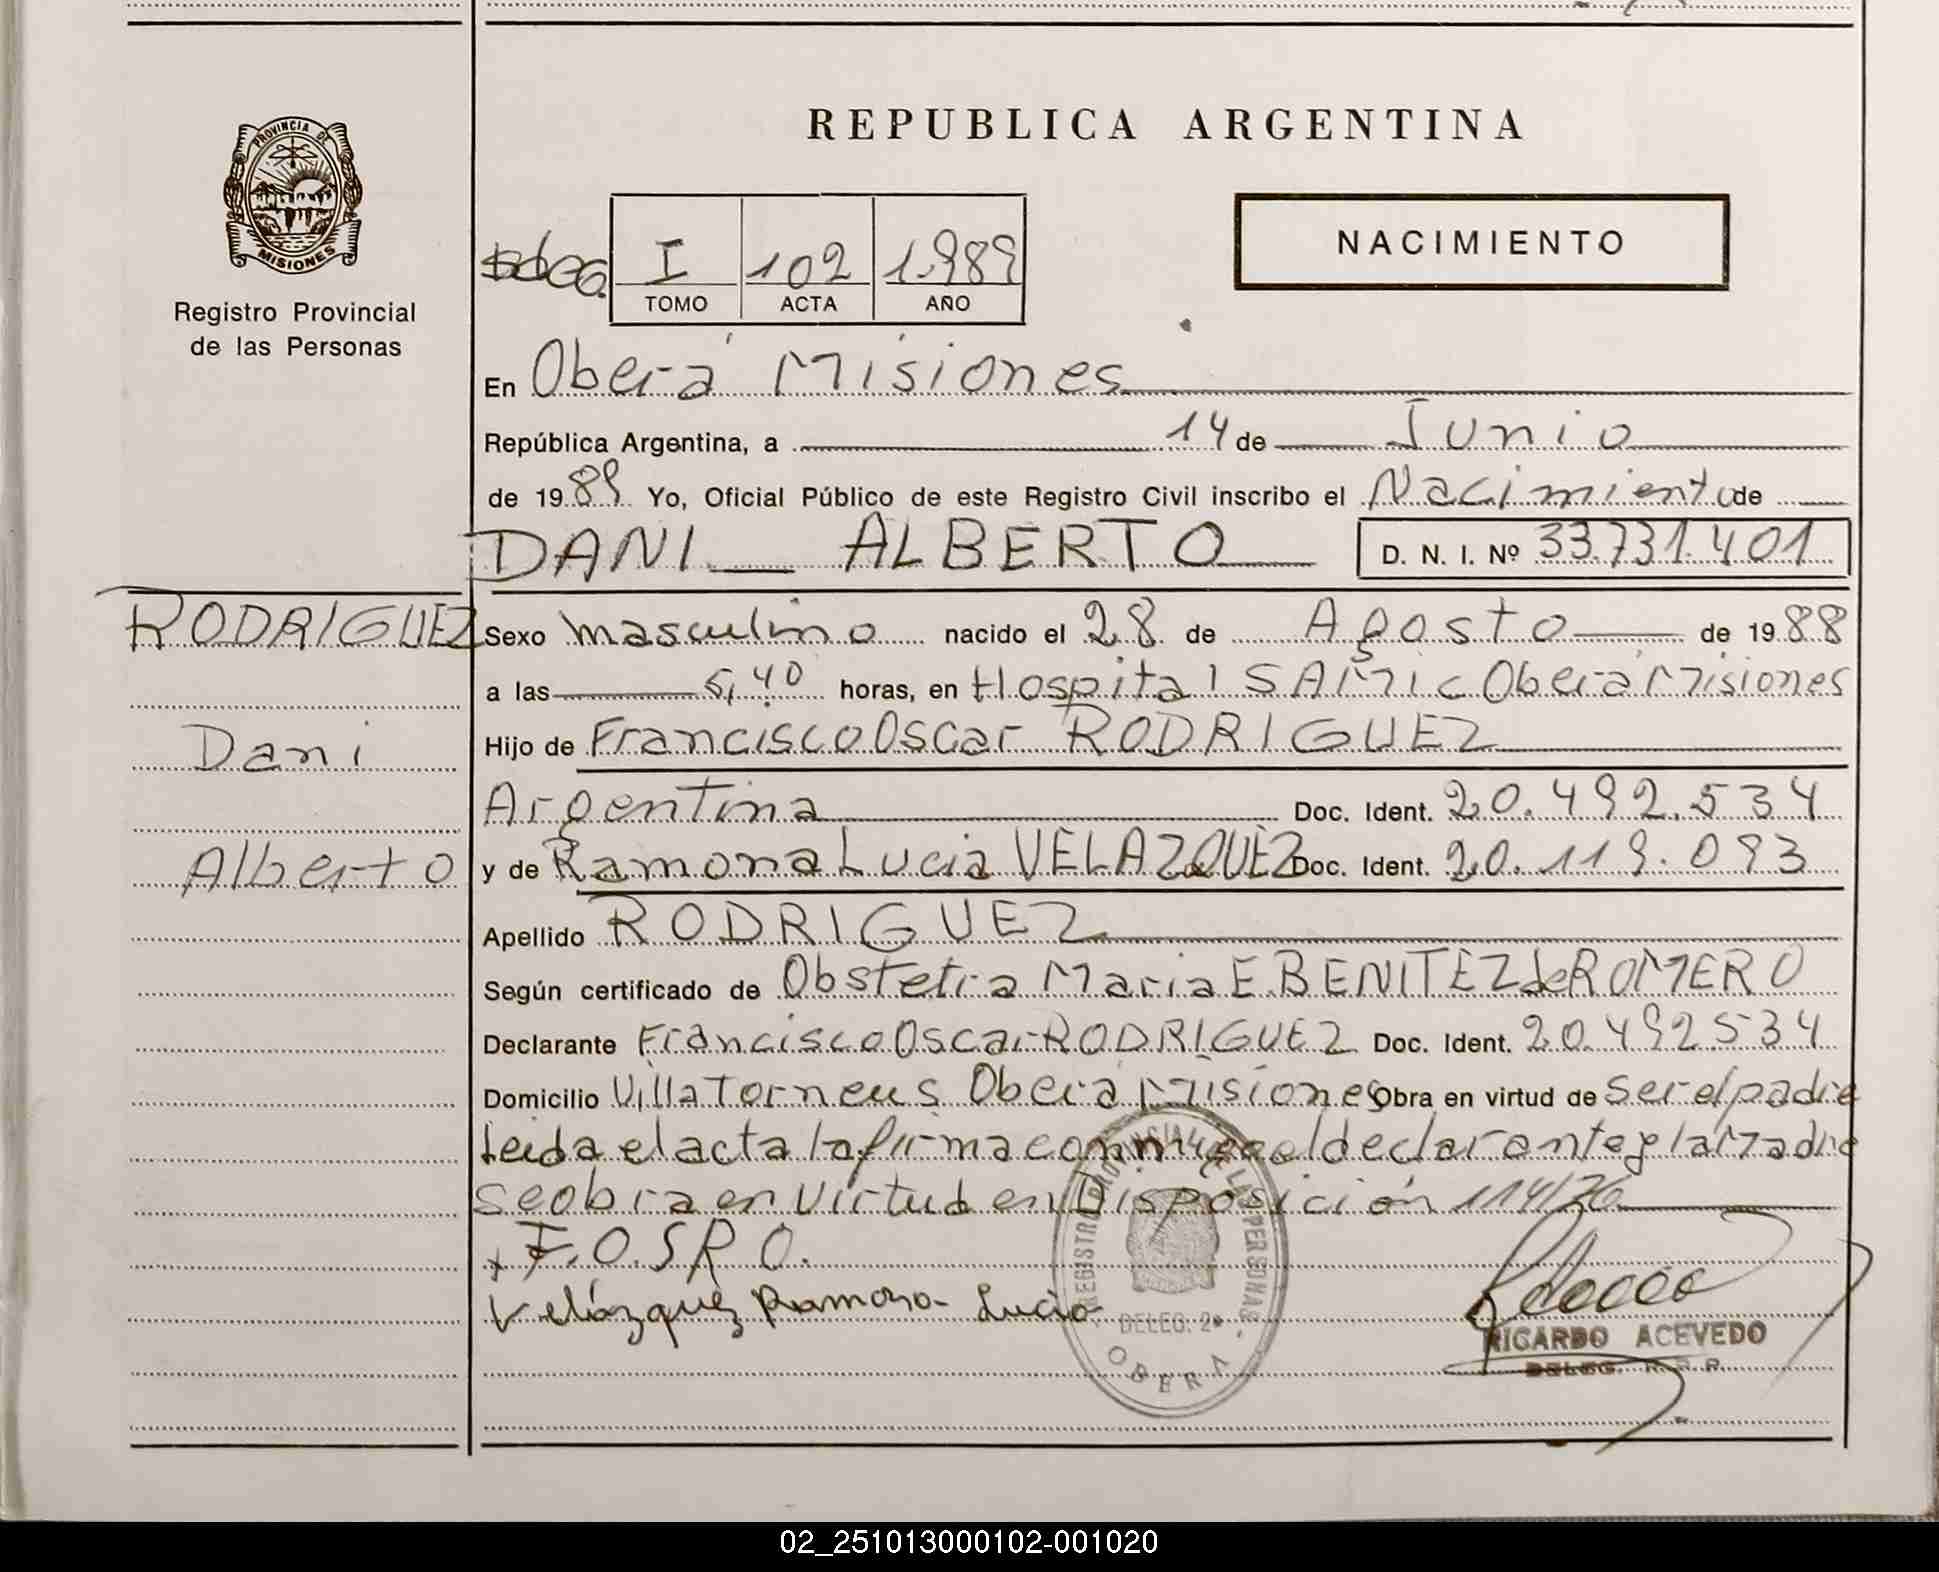 PROVINCIA DE
MISIONES
Registro Provincial
de las Personas
RODRIGUEZ
Dani
Alberto
REPUBLICA ARGENTINA
I 102 1.989
TOMO ACTA AÑO
NACIMIENTO
En Oberá Misiones
República Argentina, a 14 de Junio
de 1989 Yo, Oficial Público de este Registro Civil inscribo el Nacimiento de
DANI ALBERTO D. N. I. Nº 33.731.401
Sexo masculino nacido el 28 de Agosto de 1988
a las 5,40 horas, en Hospital SAMIC Oberá Misiones
Hijo de Francisco Oscar RODRIGUEZ
Argentina Doc. Ident. 20.492.534
y de Ramona Lucia VELAZQUEZ Doc. Ident. 20.119.093
Apellido RODRIGUEZ
Según certificado de Obstetra Maria E. BENITEZ de ROMERO
Declarante Francisco Oscar RODRIGUEZ Doc. Ident. 20.492534
Domicilio Villa Torneus Oberá Misiones Obra en virtud de ser el padre
Leida el acta la firma conmigo el declarante y la Madre
se obra en virtud en Disposición 114/76
F.O.S.R.O.
Velázquez Ramona Lucia
REGISTRO PROVINCIAL DE LAS PERSONAS
DELEG. 2ª
OBERA
RICARDO ACEVEDO
DELEG. R. P. P.
02_251013000102-001020